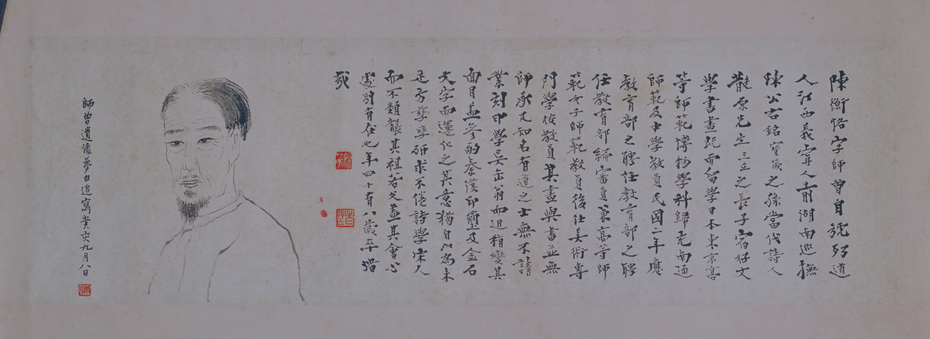 陳衡恪字師曾自號朽道
人江西義寧人前湖南巡撫
陳公右銘寶箴之孫當代詩人
散原先生三立之長子宿好文
學書畫既而留學日本東京高
等師範博物學科歸充南通
師範及中學教員民國二年應
教育部之聘任教育部之聘
任教育部編審員兼高等師
範女子師範教員後任美術專
門學校教員其畫與書並無
師承凡知名有道之士無不請
業刻印學吳缶翁而近稍變其
面目並參酌秦漢印璽及金石
文字而運化之其意猶自以為未
足方孳孳研求不倦詩學宋人
而不類襲其祖若父蓋其會心
處別有在也年四十有八歲卒惜
哉
師曾遺像夢白追寫癸亥九月八日